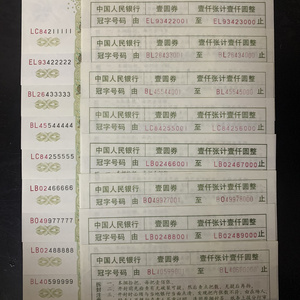 LC84211111
中国人民银行 壹圆券 壹仟张计壹仟圆整
冠字号码 由 EL93422001 至 EL93423000 止
EL93422222
中国人民银行 壹圆券 壹仟张计壹仟圆整
冠字号码 由 BL26433001 至 BL26434000 止
BL26433333
中国人民银行 壹圆券 壹仟张计壹仟圆整
冠字号码 由 BL45544001 至 BL45545000 止
BL45544444
中国人民银行 壹圆券 壹仟张计壹仟圆整
冠字号码 由 LC84255001 至 LC84256000 止
LC84255555
中国人民银行 壹圆券 壹仟张计壹仟圆整
冠字号码 由 LB02466001 至 LB02467000 止
LB02466666
中国人民银行 壹圆券 壹仟张计壹仟圆整
冠字号码 由 BO49977001 至 BO49978000 止
BO49977777
中国人民银行 壹圆券 壹仟张计壹仟圆整
冠字号码 由 LB02488001 至 LB02489000 止
LB02488888
中国人民银行 壹圆券 壹仟张计壹仟圆整
冠字号码 由 至 止
BL40599999